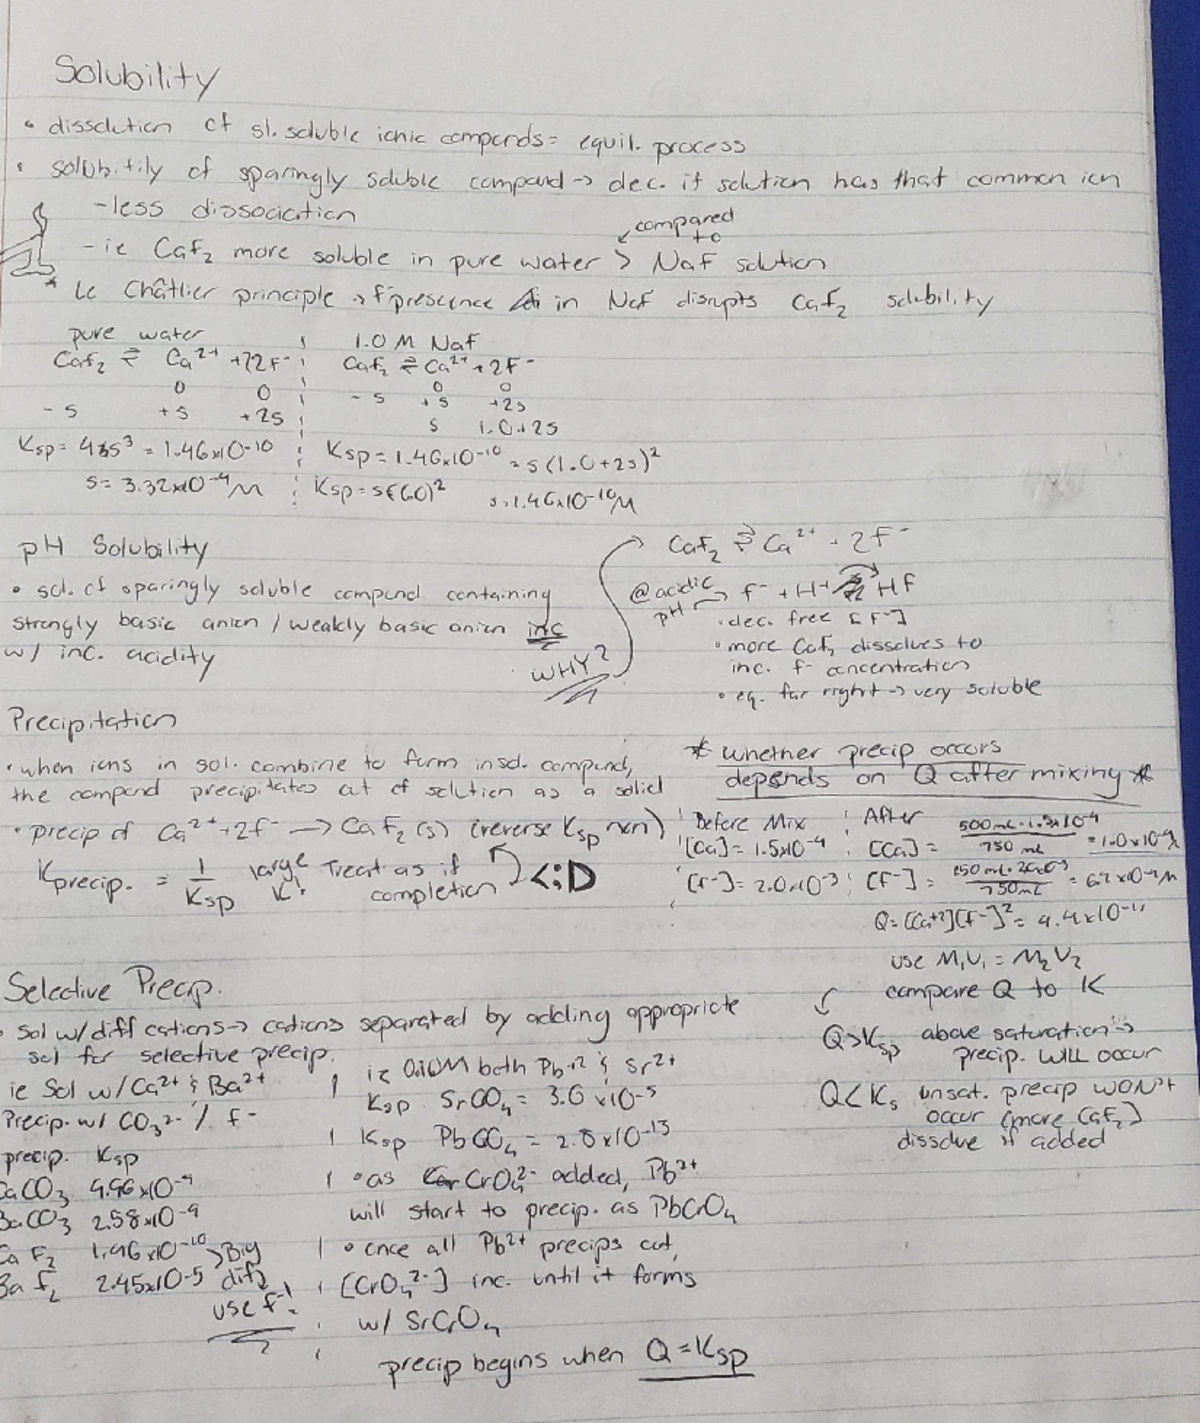 Solubility
• dissolution of sl. soluble ionic compounds = equil. process
• solubitily of sparingly soluble compound → dec. if solution has that common ion
-less dissociation
compared to
-ie CaF₂ more soluble in pure water > NaF solution
* Le Châtlier principle → F⁻ presence in NaF disrupts CaF₂ solubility
pure water
CaF₂ ⇌ Ca²⁺ + 2F⁻
0 0
-s +s +2s
Ksp = 4s³ = 1.46x10⁻¹⁰
s = 3.32x10⁻⁴ M
1.0 M NaF
CaF₂ ⇌ Ca²⁺ + 2F⁻
0 0
-s +s +2s
s 1.0+2s
Ksp = 1.46x10⁻¹⁰ = s(1.0+2s)²
Ksp = s(1.0)² s = 1.46x10⁻¹⁰ M
pH Solubility
• sol. of sparingly soluble compund containing
strongly basic anion / weakly basic anion inc
w/ inc. acidity
WHY?
CaF₂ ⇌ Ca²⁺ + 2F⁻
@acidic pH → F⁻ + H⁺ → HF
• dec. free [F⁻]
• more CaF₂ dissolves to
inc. F⁻ concentration
• eq. far right → very soluble
Precipitation
• when ions in sol. combine to form insol. compound,
the compound precipitates out of solution as a solid
• precip of Ca²⁺ + 2F⁻ → CaF₂(s) (reverse Ksp rxn)
Kprecip. = 1/Ksp large K! Treat as if
completion <:D
* whether precip occurs
depends on Q after mixing *
Before Mix
[Ca] = 1.5x10⁻⁴
[F⁻] = 2.0x10⁻³
After
[Ca] = 500mL · 1.5x10⁻⁴ / 750 mL = 1.0x10⁻⁴
[F⁻] = 250mL · 2.0x10⁻³ / 750mL = 6.7x10⁻⁴ M
Q = [Ca⁺²][F⁻]² = 4.4x10⁻¹¹
use M₁V₁ = M₂V₂
compare Q to K
Q>Ksp above saturation →
precip. WILL occur
Q<Ks unsat. precip WON'T
occur (more CaF₂)
dissolve if added
Selective Precip.
• Sol w/ diff cations → cations separated by adding appropriate
sol for selective precip.
ie Sol w/ Ca²⁺ & Ba²⁺
Precip. w/ CO₃²⁻ / F⁻
precip. Ksp
CaCO₃ 4.96x10⁻⁹
BaCO₃ 2.58x10⁻⁹
CaF₂ 1.46x10⁻¹⁰ > Big
BaF₂ 2.45x10⁻⁵ diff
use F⁻!
ie 0.10M both Pb⁺² & Sr²⁺
Ksp SrCrO₄ = 3.6x10⁻⁵
Ksp PbCrO₄ = 2.8x10⁻¹³
• as CrO₄²⁻ added, Pb²⁺
will start to precip. as PbCrO₄
• once all Pb²⁺ precips out,
[CrO₄²⁻] inc. until it forms
w/ SrCrO₄
precip begins when Q = Ksp